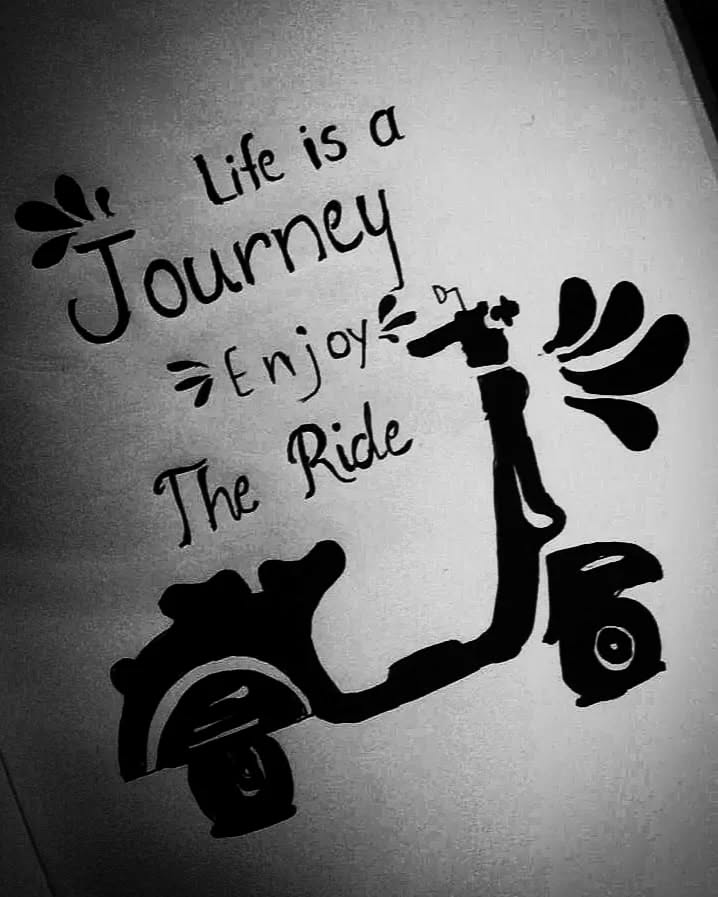 Life is a
Journey
Enjoy
The Ride